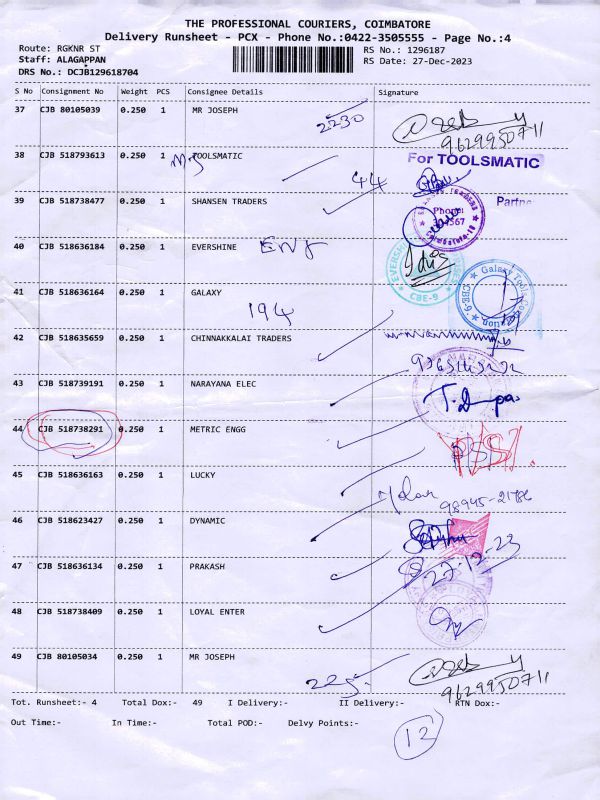 THE PROFESSIONAL COURIERS, COIMBATORE
Delivery Runsheet - PCX - Phone No.:0422-3505555 - Page No.:4
Route: RGKNR ST RS No.: 1296187
Staff: ALAGAPPAN RS Date: 27-Dec-2023
DRS No.: DCJB129618704
S No Consignment No Weight PCS Consignee Details Signature
37 CJB 80105039 0.250 1 MR JOSEPH 2230
9629950711
38 CJB 518793613 0.250 1 M/S TOOLSMATIC For TOOLSMATIC
44
39 CJB 518738477 0.250 1 SHANSEN TRADERS Phone: Partne
40 CJB 518636184 0.250 1 EVERSHINE
CBE-9
41 CJB 518636164 0.250 1 GALAXY Galaxy Tools
194
42 CJB 518635659 0.250 1 CHINNAKKALAI TRADERS
43 CJB 518739191 0.250 1 NARAYANA ELEC
44 CJB 518738291 0.250 1 METRIC ENGG
45 CJB 518636163 0.250 1 LUCKY
98945-21786
46 CJB 518623427 0.250 1 DYNAMIC
47 CJB 518636134 0.250 1 PRAKASH 27-12-23
48 CJB 518738409 0.250 1 LOYAL ENTER
49 CJB 80105034 0.250 1 MR JOSEPH
9629950711
Tot. Runsheet:- 4 Total Dox:- 49 I Delivery:- II Delivery:- RTN Dox:-
Out Time:- In Time:- Total POD:- Delvy Points:-
12